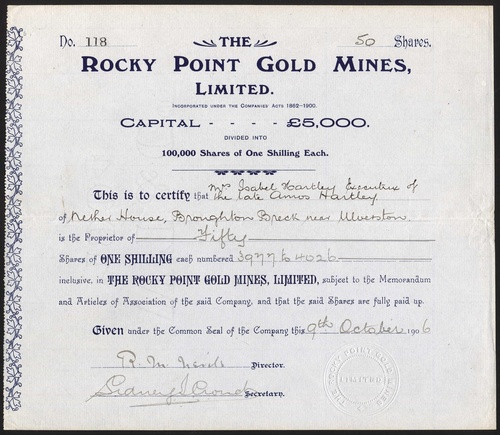 No. 118 THE 50 Shares.
ROCKY POINT GOLD MINES,
LIMITED.
INCORPORATED UNDER THE COMPANIES' ACTS 1862-1900.
CAPITAL - - - - £5,000.
DIVIDED INTO
100,000 Shares of One Shilling Each.
This is to certify that Mrs Isabel Hartley Executrix of
the late Amos Hartley
of Nether House, Broughton Beck near Ulverston
is the Proprietor of Fifty
Shares of ONE SHILLING each numbered 3977 to 4026
inclusive, in THE ROCKY POINT GOLD MINES, LIMITED, subject to the Memorandum
and Articles of Association of the said Company, and that the said Shares are fully paid up.
Given under the Common Seal of the Company this 9th October 1906
R. M. Director.
Sidney Secretary.
THE ROCKY POINT GOLD MINES
LIMITED